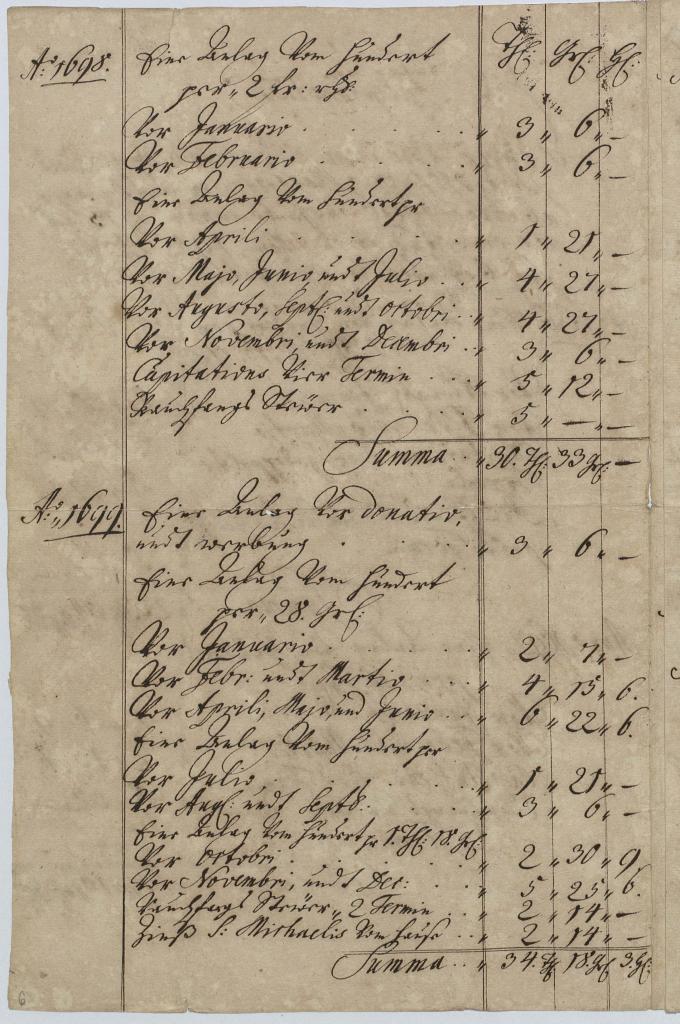 Thl: Grl: Hl:
Ao: 1698. Eine Anlag Vom hundert
per „ 2 fr: rhs:
Vor Januario . . . . „ 3 „ 6 „ —
Vor Februario . . . . „ 3 „ 6 „ —
Eine Anlag Vom hundert pr
Vor Aprili . . . . „ 1 „ 21 „ —
Vor Majo, Junio undt Julio . . „ 4 „ 27 „ —
Vor Augusto, Septl: undt Octobri . „ 4 „ 27 „ —
Vor Novembri, undt Decembri . . „ 3 „ 6 „ —
Capitations Vier Termin . . . „ 5 „ 12 „ —
Rauchfangs Stewer . . . . „ 5 „ — „ —
Summa . . „ 30. Thl: 33 grl: —
Ao: „ 1699. Eine Anlag Vor donativ,
undt werbung . . . . „ 3 „ 6 „ —
Eine Anlag Vom hundert
per „ 28. Grl:
Vor Januario . . . . „ 2 „ 7 „ —
Vor Febr: undt Martio . . . „ 4 „ 15 „ 6.
Vor Aprili, Majo, und Junio . . „ 6 „ 22 „ 6.
Eine Anlag Vom hundert per
Vor Julio . . . . „ 1 „ 21 „ —
Vor Augl: undt Sept8: . . . „ 3 „ 6 „ —
Eine Anlag Vom hundert pr 1. Thl: 18. Grl:
Vor Octobri . . . . „ 2 „ 30 „ 9
Vor Novembri, undt Dec: . . . „ 5 „ 25 „ 6.
Rauchfangs Stewer „ 2 Termin . . „ 2 „ 14 „ —
Zinß S: Michaelis Vom hauß . . „ 2 „ 14 „ —
Summa . . „ 34. Thl 18. grl 3. Hl:
6